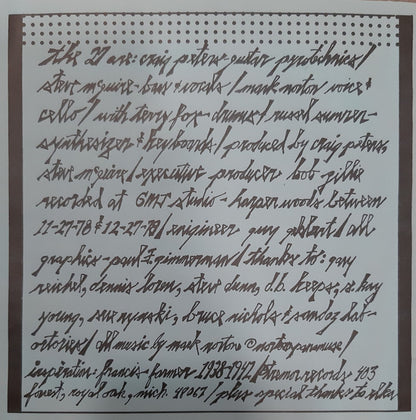 the 27 are: craig peters-guitar pyrotechnics/
steve mcguire-bass & words/mark norton voice &
cello/with terry fox-drums/russel sumner-
synthesizer & keyboards/produced by craig peters,
steve mcguire/executive producer bob
recorded at GMT studio-harper woods between
11-27-78 & 12-27-78/engineer gary /all
graphics-paul zimmerman/thanks to: gary
reichel, dennis loren, steve dunn, d.b. keeps, st. kay
young, sue rynski, bruce nichols & sandoz lab-
ortories/all music by mark norton ©
inspiration: francis farmer 1938-1942/tremor records 403
forest, royal oak, mich. 48067/plus special thanks to